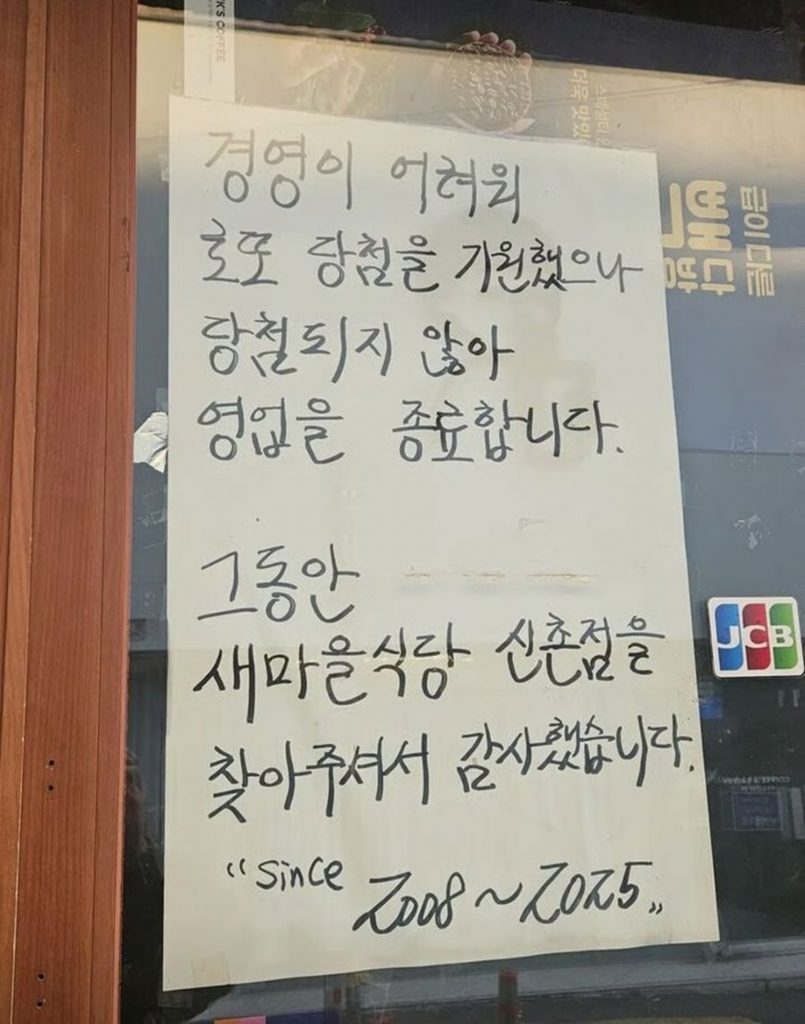 K'S COFFEE
경영이 어려워
로또 당첨을 기원했으나
당첨되지 않아
영업을 종료합니다.
그동안
새마을식당 신촌점을
찾아주셔서 감사했습니다.
"since 2008~2025"
급이 다른
빽다방
JCB